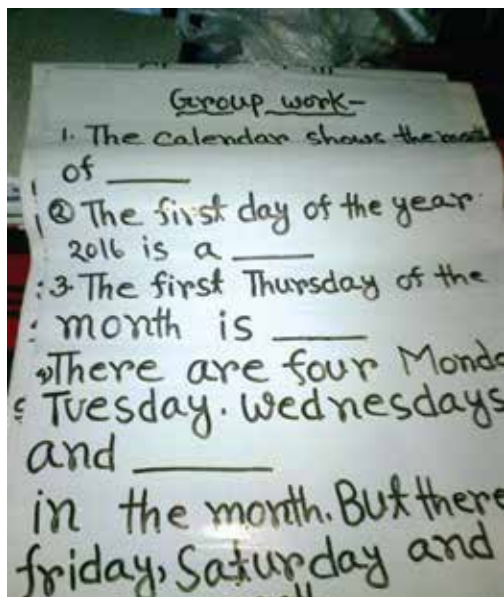 Group work-
1. The calendar shows the month
of ____
② The first day of the year
2016 is a ____
3. The first Thursday of the
month is ____
There are four Monda
Tuesday. Wednesdays
and ____
in the month. But there
friday, Saturday and